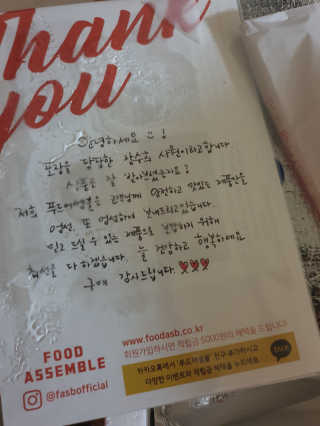 Thank
you
안녕하세요 !
포장을 담당한 장수희 사원이라고합니다
상품은 잘 받아보셨을까요?
저희 푸드어셈블은 고객님께 안전하고 맛있는 제품만을
엄선, 또 엄선하여 보내드리고있습니다.
믿고 드실 수 있는 제품으로 보답하기 위해
최선을 다 하겠습니다. 늘 건강하고 행복하세요
구매 감사드립니다
www.foodasb.co.kr
회원가입하시면 적립금 5000원의 혜택을 드립니다!
카카오톡에서 '푸드어셈블' 친구 추가하시고
다양한 이벤트와 적립금 혜택을 누리세요
TALK
FOOD
ASSEMBLE
@fasbofficial